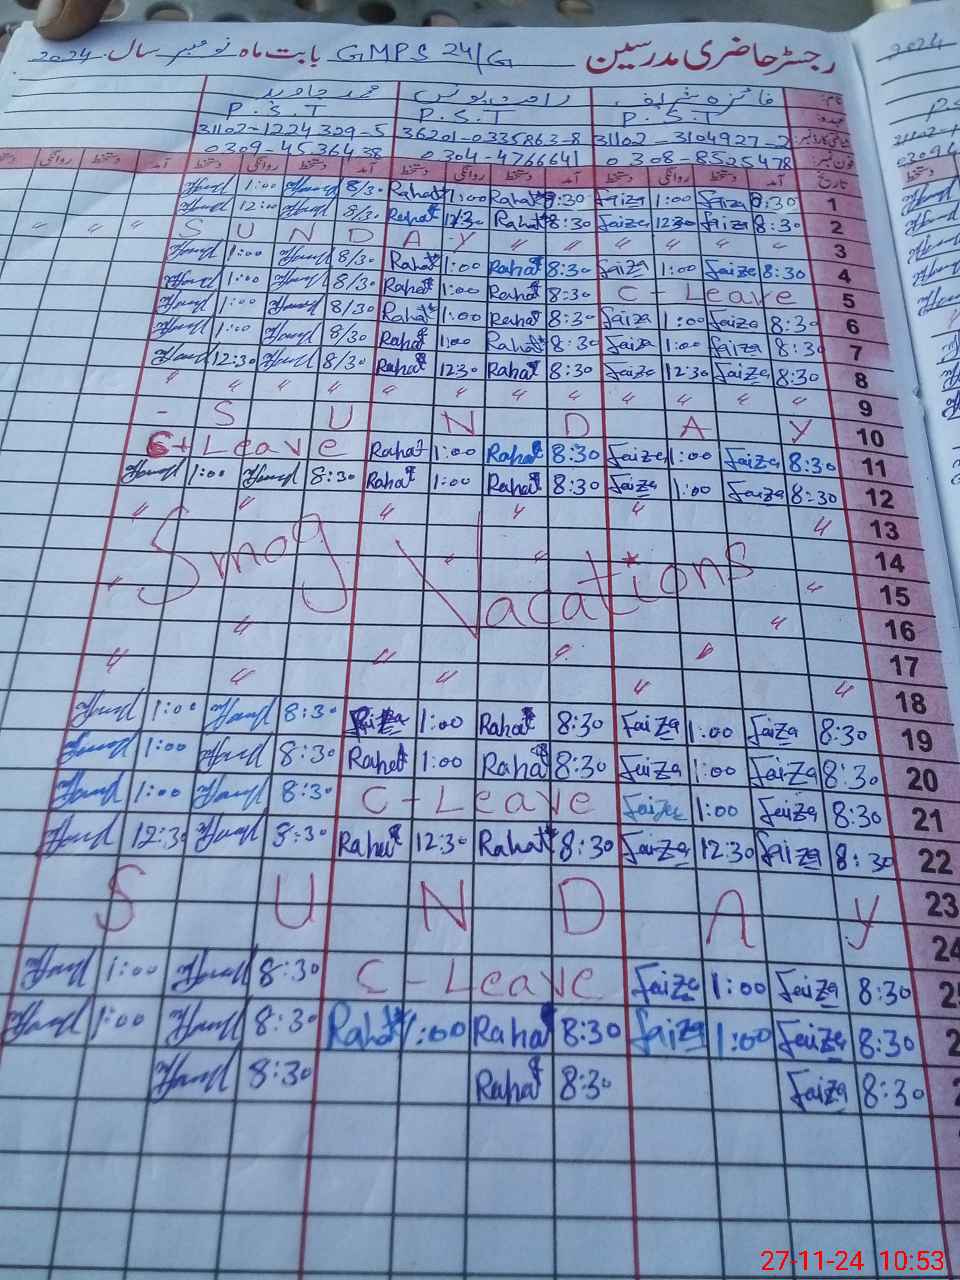 رجسٹر حاضری مدرسین GMPS 24/G بابت ماہ نومبر سال 2024
نام: فائزہ شریف راحت یونس محمد جاوید
عہدہ: P.S.T P.S.T P.S.T
شناختی کارڈ نمبر: 31102-3104927-2 36201-0335863-8 31102-1224329-5
فون نمبر: 0308-8525478 0304-4766641 0309-4536438
تاریخ آمد دستخط روانگی دستخط آمد دستخط روانگی دستخط آمد دستخط روانگی دستخط آمد دستخط روانگی دستخط
1 8:30 Faiza 1:00 Faiza 8:30 Rahat 1:00 Rahat 8/30 1:00
2 8:30 Faiza 12:30 Faiza 8:30 Rahat 12:30 Rahat 8/30 12:00
3 S U N D A Y " " " " " "
4 8:30 Faiza 1:00 Faiza 8:30 Rahat 1:00 Rahat 8/30 1:00
5 C - Leave 8:30 Rahat 1:00 Rahat 8/30 1:00
6 8:30 Faiza 1:00 Faiza 8:30 Rahat 1:00 Rahat 8/30 1:00
7 8:30 Faiza 1:00 Faiza 8:30 Rahat 1:00 Rahat 8/30 1:00
8 8:30 Faiza 12:30 Faiza 8:30 Rahat 12:30 Rahat 8/30 12:30
9 " " " " " " " " " " "
10 - S U N D A Y
11 8:30 Faiza 1:00 Faiza 8:30 Rahat 1:00 Rahat C - Leave
12 8:30 Faiza 1:00 Faiza 8:30 Rahat 1:00 Rahat 8:30 1:00
13 " " " " " "
14 Smog Vacations
15
16
17
18
19 8:30 Faiza 1:00 Faiza 8:30 Rahat 1:00 8:30 1:00
20 8:30 Faiza 1:00 Faiza 8:30 Rahat 1:00 Rahat 8:30 1:00
21 8:30 Faiza 1:00 Faiza C - Leave 8:30 1:00
22 8:30 Faiza 12:30 Faiza 8:30 Rahat 12:30 Rahat 8:30 12:30
23 S U N D A Y
24
8:30 Faiza 1:00 Faiza C - Leave 8:30 1:00
8:30 Faiza 1:00 Faiza 8:30 Rahat 1:00 Rahat 8:30 1:00
8:30 Faiza 8:30 Rahat 8:30
27-11-24 10:53